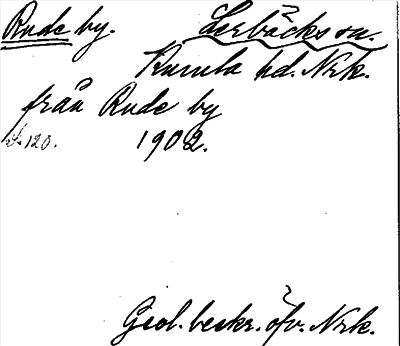 Rude by. Lerbäcks sn.
Kumla hd. Nrk.
från Rude by
S. 120. 1902.
Geol. beskr. öfv. Nrk.